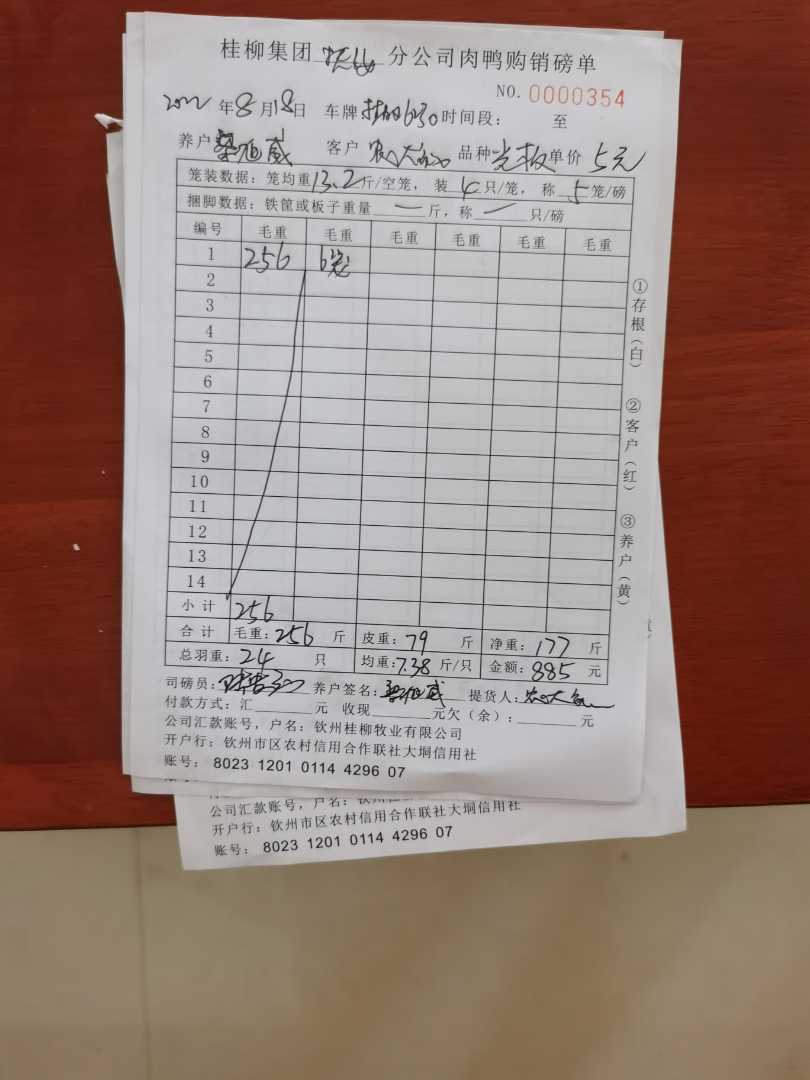 桂柳集团 分公司肉鸭购销磅单
NO. 0000354
2022年8月18日 车牌 630 时间段: 至
养户 客户 农大 品种 光板 单价 5元
笼装数据: 笼均重13.2斤/空笼, 装4只/笼, 称5笼/磅
捆脚数据: 铁筐或板子重量 一 斤, 称 一 只/磅
编号 毛重 毛重 毛重 毛重 毛重 毛重
1 256 6笼
2
3
4
5
6
7
8
9
10
11
12
13
14
小计 256
合计 毛重: 256 斤 皮重: 79 斤 净重: 177 斤
总羽重: 24 只 均重: 7.38 斤/只 金额: 885 元
司磅员: 养户签名: 提货人: 农大
付款方式: 汇______元 收现______元欠(余): ______元
公司汇款账号, 户名: 钦州桂柳牧业有限公司
开户行: 钦州市区农村信用合作联社大垌信用社
账号: 8023 1201 0114 4296 07
①存根(白)
②客户(红)
③养户(黄)
公司汇款账号, 户名: 钦州桂
开户行: 钦州市区农村信用合作联社大垌信用社
账号: 8023 1201 0114 4296 07